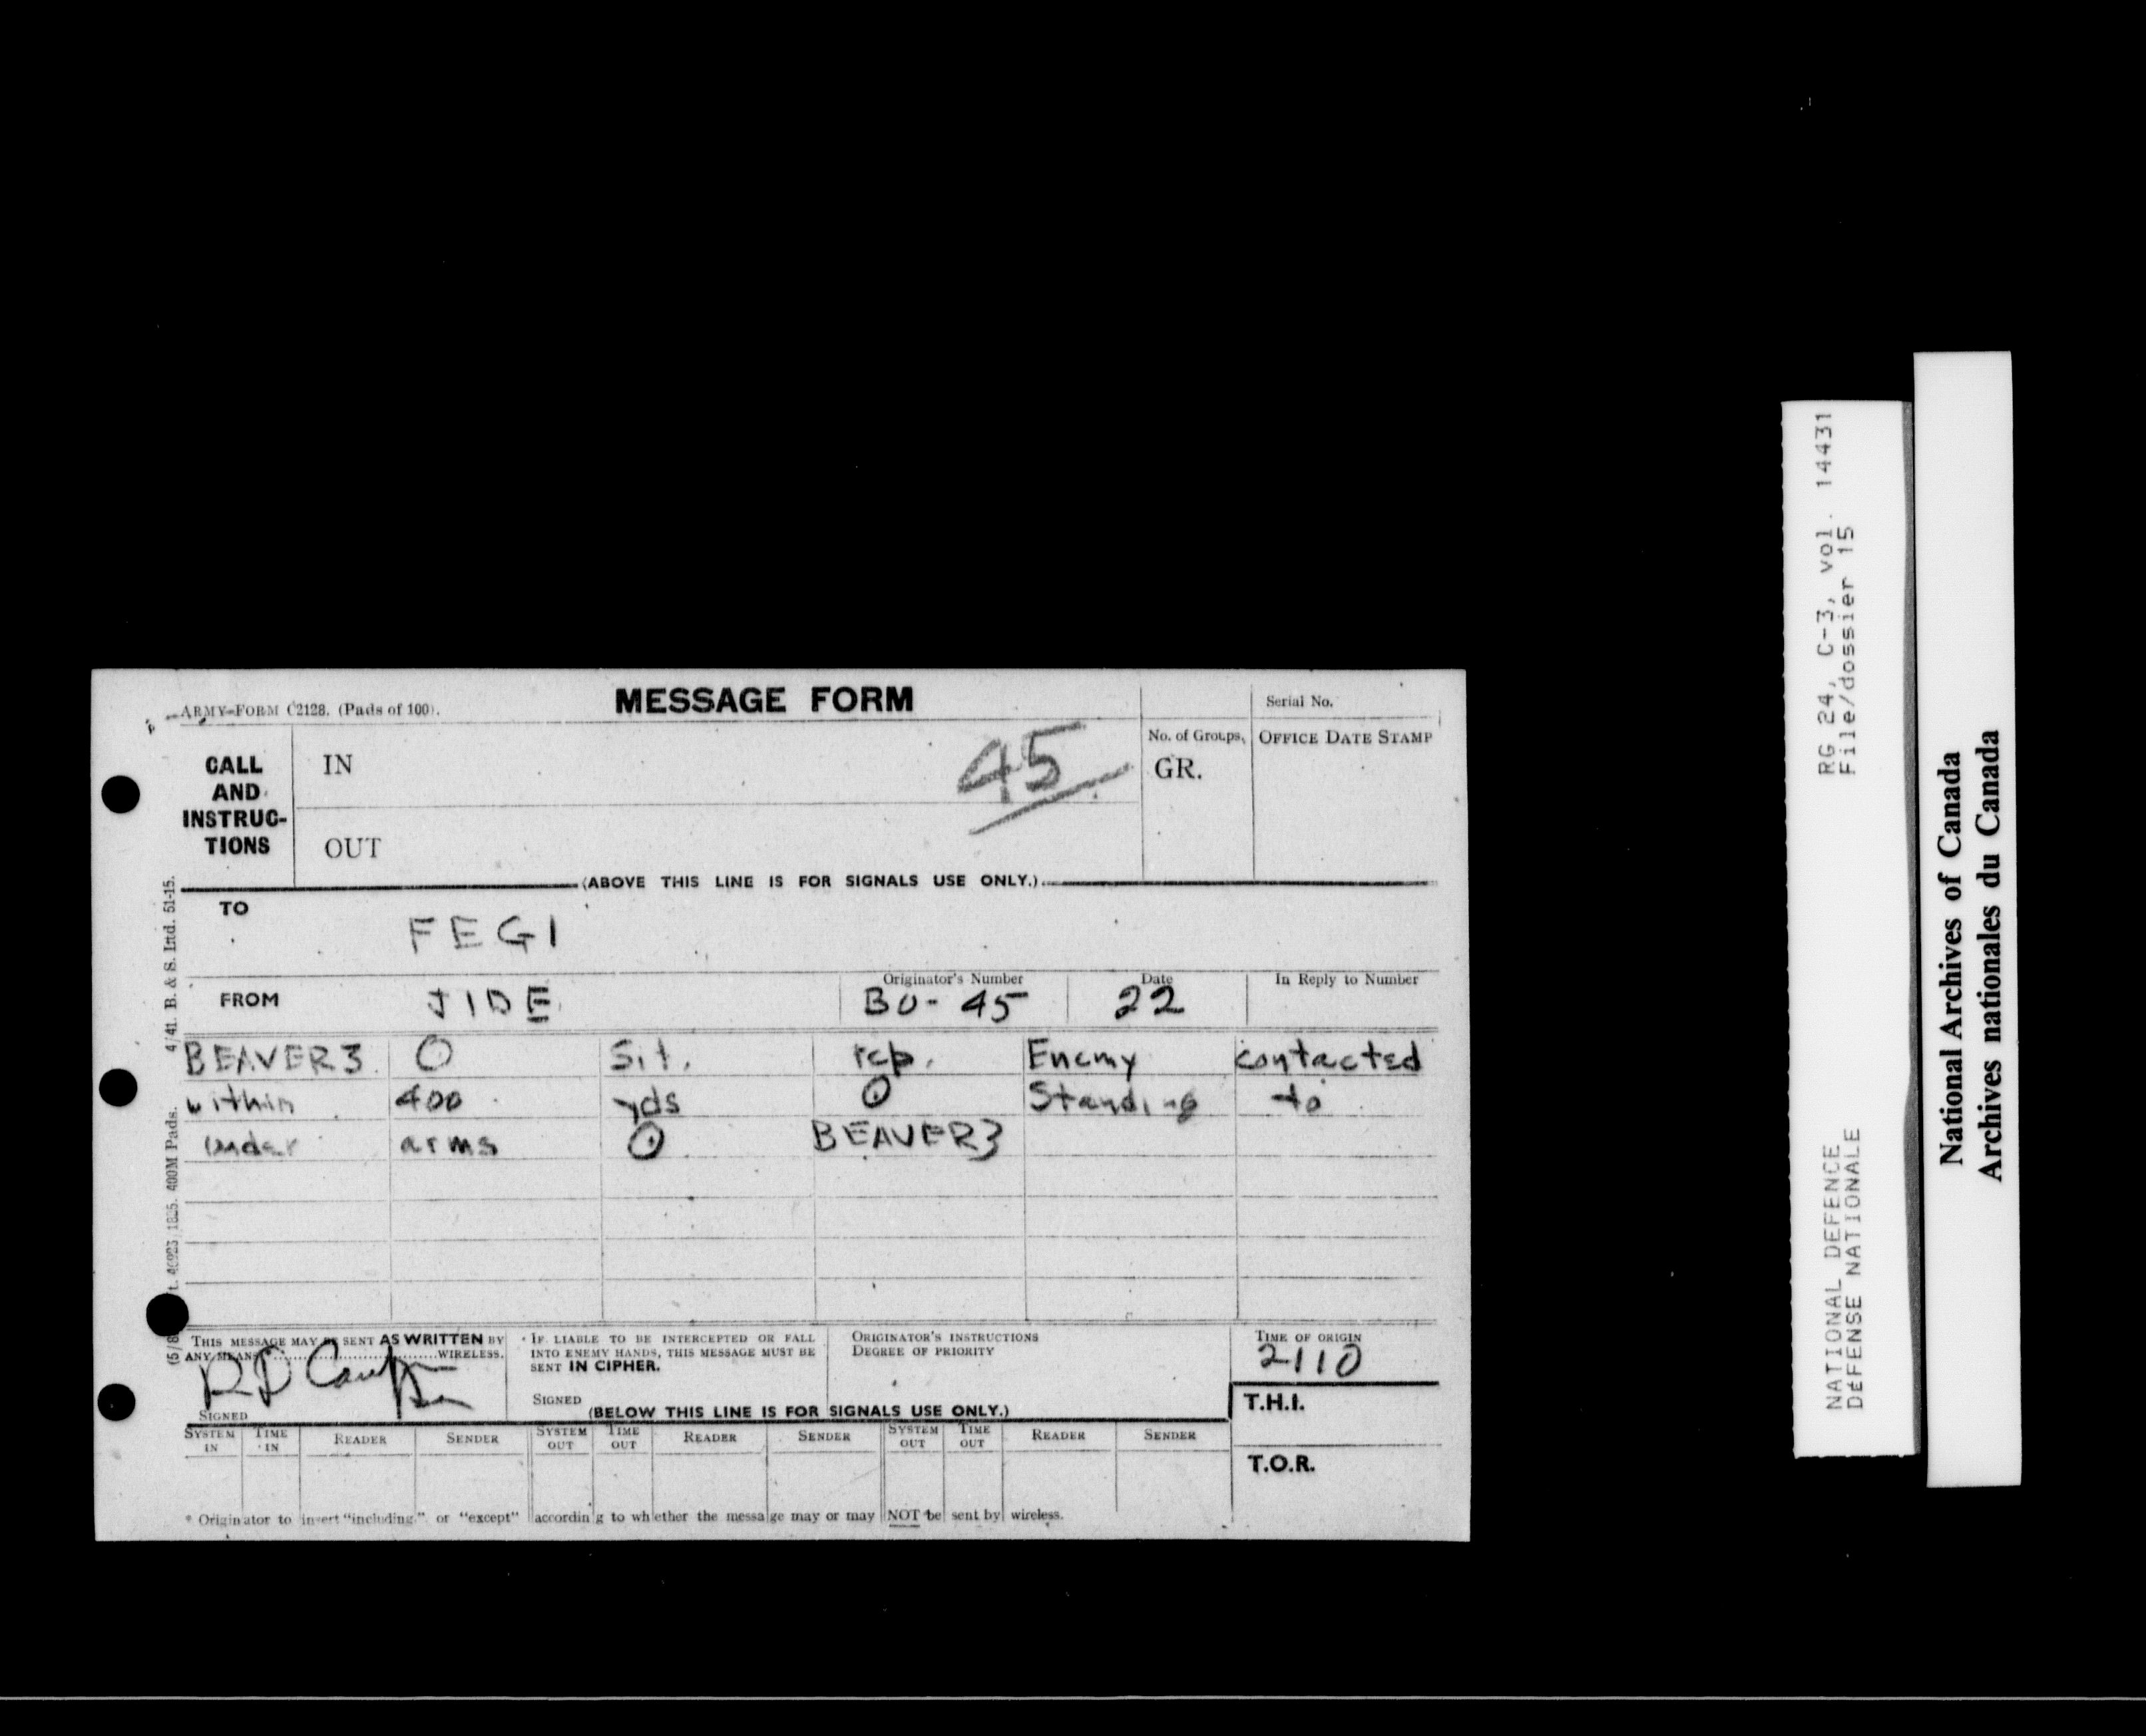 ARMY FORM C2128. (Pads of 100).
MESSAGE FORM
Serial No.
CALL AND INSTRUC-TIONS
IN
45
No. of Groups.
GR.
OFFICE DATE STAMP
OUT
(ABOVE THIS LINE IS FOR SIGNALS USE ONLY.)
TO
FEGI
FROM
JIDE
Originator's Number
BU-45
Date
22
In Reply to Number
BEAVER3 O Sit. rep. Enemy contacted
within 400 yds O Standing to
under arms O BEAVER3
THIS MESSAGE MAY BE SENT AS WRITTEN BY
ANY MEANS WIRELESS.
SIGNED
IF LIABLE TO BE INTERCEPTED OR FALL
INTO ENEMY HANDS, THIS MESSAGE MUST BE
SENT IN CIPHER.
SIGNED
ORIGINATOR'S INSTRUCTIONS
DEGREE OF PRIORITY
TIME OF ORIGIN
2110
T.H.I.
(BELOW THIS LINE IS FOR SIGNALS USE ONLY.)
SYSTEM IN TIME IN READER SENDER SYSTEM OUT TIME OUT READER SENDER SYSTEM OUT TIME OUT READER SENDER
T.O.R.
* Originator to insert "including" or "except" according to whether the message may or may NOT be sent by wireless.
4/41. B. & S. Ltd. 51-15.
400M Pads.
RG 24, C-3, vol. 14431
File/dossier 15
NATIONAL DEFENCE
DÉFENSE NATIONALE
National Archives of Canada
Archives nationales du Canada